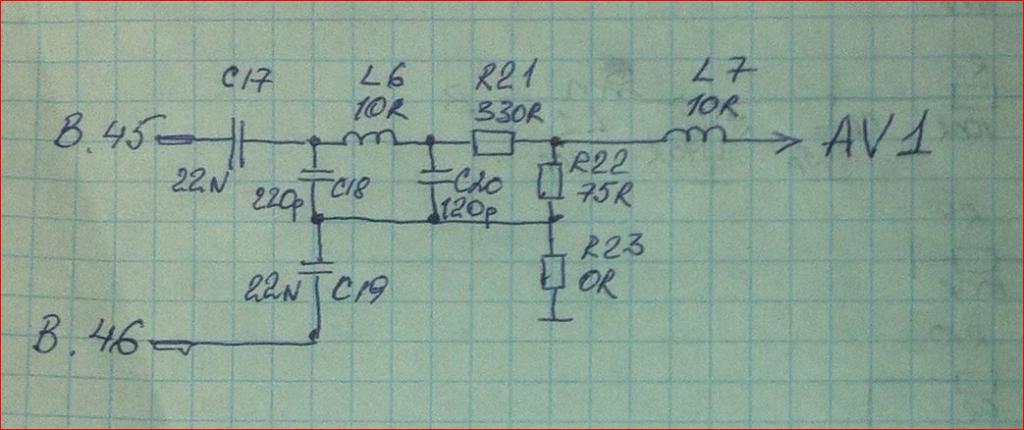 C17 L6 R21 L7
10R 330R 10R
B.45 AV1
22N 220p C18 C20 R22
120p 75R
R23
22N C19 0R
B.46